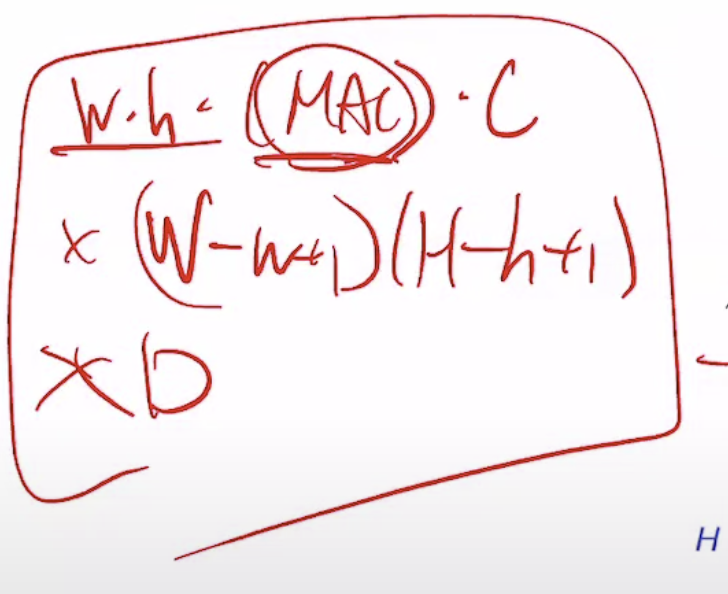 w·h·(MAC)·C
× (W-w+1)(H-h+1)
× D
H